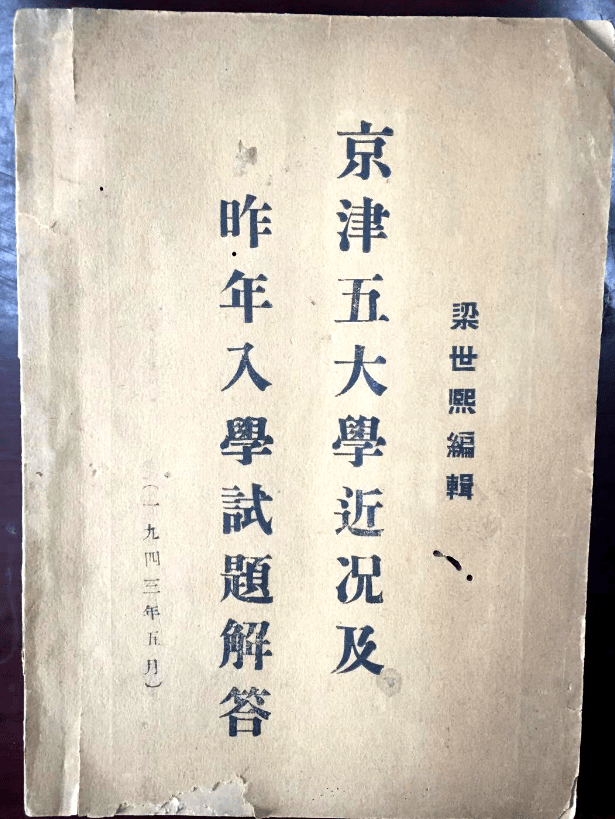 梁世熙編輯
京津五大學近况及
昨年入學試題解答
(一九四三年五月)